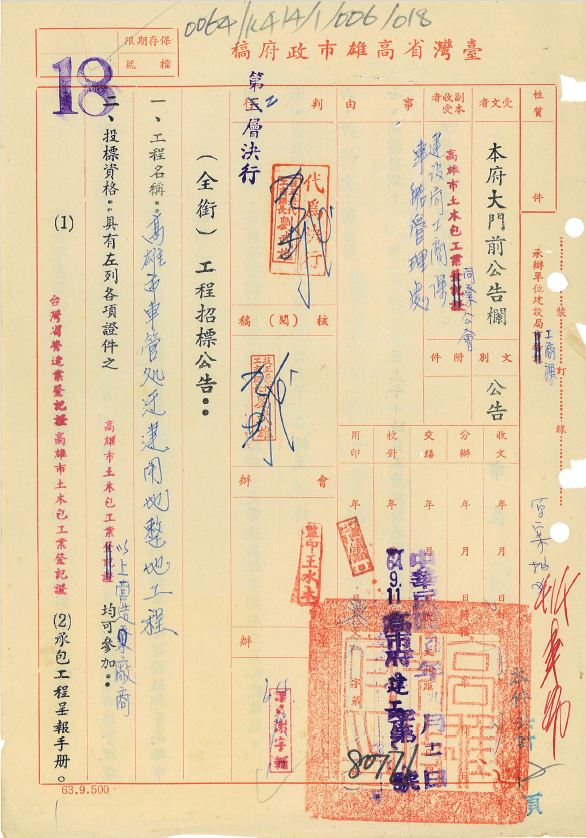 0064/K414/1/006/018
臺灣省高雄市政府稿
保存期限
檔號
18
性質
件
受文者
本府大門前公告欄
副本收受者
高雄市土木包工業登記證
同業公會
建設局工商課
車輛管理處
事由
判行
第二層決行
代為決行
承辦單位建設局
工商課
裝訂線
文別
公告
附件
核(閱)稿
會辦
收文
分辦
交繕
校對
用印
年月日
(全銜)工程招標公告：
一、工程名稱：高雄市車管處遷建用地整地工程
二、投標資格：具有左列各項證件之
以上營造業廠商
均可參加：
(1)
台灣省營造業登記證
高雄市土木包工業登記證
高雄市土木包工業登記證
(2)承包工程呈報手册。
監印王水土
中華民國
64.9.11
高市府建工
字第
號
80771
63.9.500
頁